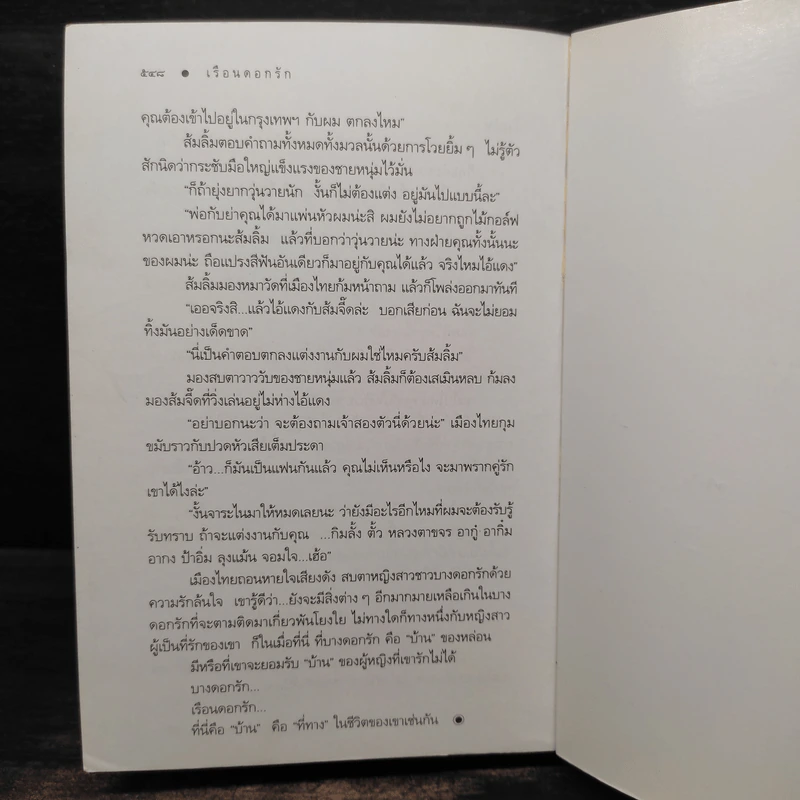 ๕๔๘ ● เรือนดอกรัก
คุณต้องเข้าไปอยู่ในกรุงเทพฯ กับผม ตกลงไหม”
ส้มลิ้มตอบคำถามทั้งหมดทั้งมวลนั้นด้วยการโวยยิ้มๆ ไม่รู้ตัว
สักนิดว่ากระชับมือใหญ่แข็งแรงของชายหนุ่มไว้มั่น
“ก็ถ้ายุ่งยากวุ่นวายนัก งั้นก็ไม่ต้องแต่ง อยู่มันไปแบบนี้ละ”
“พ่อกับย่าคุณได้มาแพ่นหัวผมน่ะสิ ผมยังไม่อยากถูกไม้กอล์ฟ
หวดเอาหรอกนะส้มลิ้ม แล้วที่บอกว่าวุ่นวายน่ะ ทางฝ่ายคุณทั้งนั้นนะ
ของผมน่ะ ถือแปรงสีฟันอันเดียวก็มาอยู่กับคุณได้แล้ว จริงไหมไอ้แดง”
ส้มลิ้มมองหมาวัดที่เมืองไทยก้มหน้าถาม แล้วก็โพล่งออกมาทันที
“เออจริงสิ...แล้วไอ้แดงกับส้มจี๊ดล่ะ บอกเสียก่อน ฉันจะไม่ยอม
ทิ้งมันอย่างเด็ดขาด”
“นี่เป็นคำตอบตกลงแต่งงานกับผมใช่ไหมครับส้มลิ้ม”
มองสบตาวาววับของชายหนุ่มแล้ว ส้มลิ้มก็ต้องเสเมินหลบ ก้มลง
มองส้มจี๊ดที่วิ่งเล่นอยู่ไม่ห่างไอ้แดง
“อย่าบอกนะว่า จะต้องถามเจ้าสองตัวนี่ด้วยน่ะ” เมืองไทยกุม
ขมับราวกับปวดหัวเสียเต็มประดา
“อ้าว...ก็มันเป็นแฟนกันแล้ว คุณไม่เห็นหรือไง จะมาพรากคู่รัก
เขาได้ไงล่ะ”
“งั้นจาระไนมาให้หมดเลยนะ ว่ายังมีอะไรอีกไหมที่ผมจะต้องรับรู้
รับทราบ ถ้าจะแต่งงานกับคุณ ...กิมลั้ง ตั้ว หลวงตาขจร อากู๋ อากิ๋ม
อากง ป้าอิ่ม ลุงแม้น จอมใจ...เฮ้อ”
เมืองไทยถอนหายใจเสียงดัง สบตาหญิงสาวชาวบางดอกรักด้วย
ความรักล้นใจ เขารู้ดีว่า...ยังจะมีสิ่งต่างๆ อีกมากมายเหลือเกินในบาง
ดอกรักที่จะตามติดมาเกี่ยวพันโยงใย ไม่ทางใดก็ทางหนึ่งกับหญิงสาว
ผู้เป็นที่รักของเขา ก็ในเมื่อที่นี่ ที่บางดอกรัก คือ “บ้าน” ของหล่อน
มีหรือที่เขาจะยอมรับ “บ้าน” ของผู้หญิงที่เขารักไม่ได้
บางดอกรัก...
เรือนดอกรัก...
ที่นี่คือ “บ้าน” คือ “ที่ทาง” ในชีวิตของเขาเช่นกัน ●